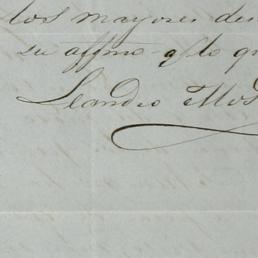 los mayores de
su affmo
Leandro Mos